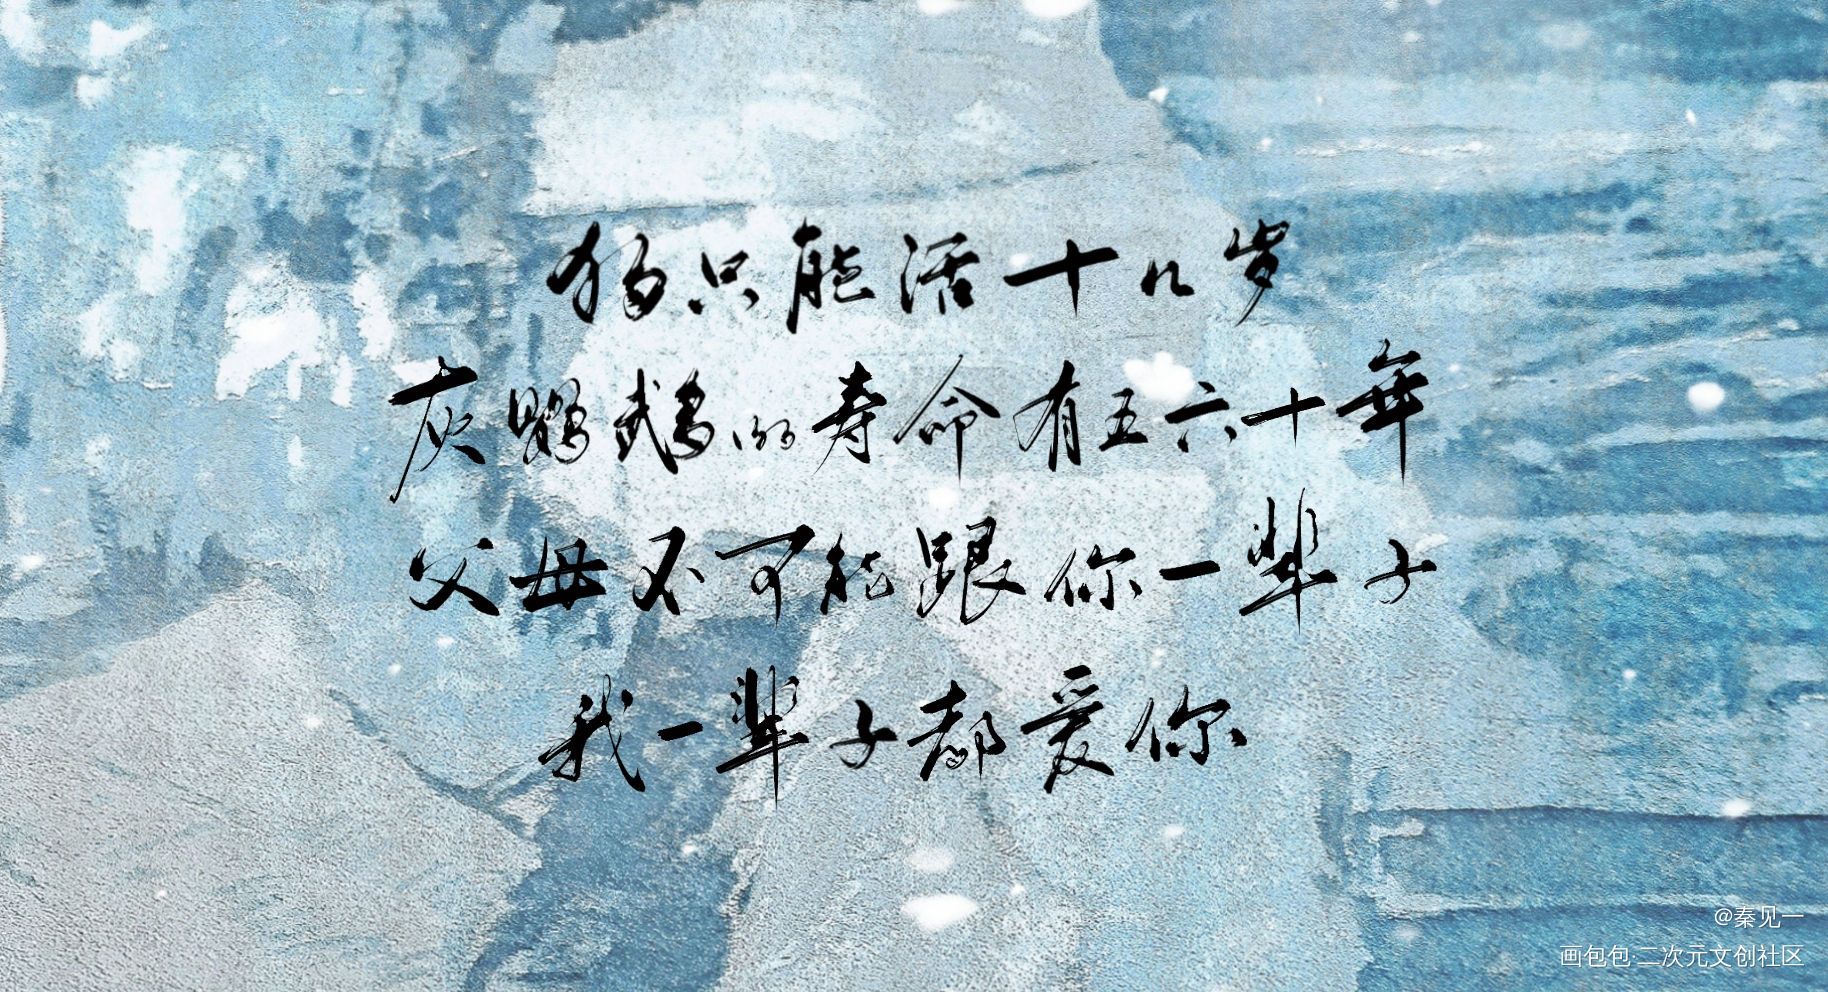 狗只能活十几岁
灰鹦鹉的寿命有五六十年
父母不可能跟你一辈子
我一辈子都爱你
@秦见一
画包包·二次元文创社区